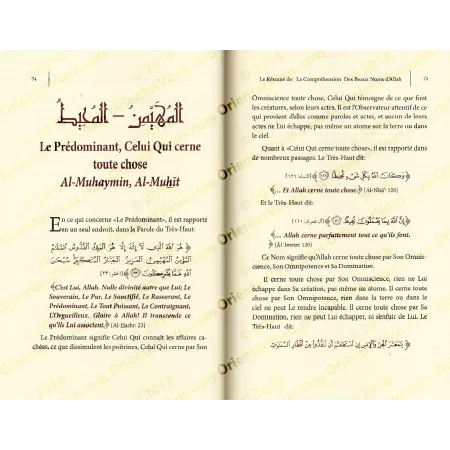 74
المهيمن – المحيط
Le Prédominant, Celui Qui cerne
toute chose
Al-Muhaymin, Al-Muḥît
En ce qui concerne «Le Prédominant», il est rapporté
en un seul endroit, dans la Parole du Très-Haut:
﴿ هُوَ اللَّهُ الَّذِي لَا إِلَٰهَ إِلَّا هُوَ الْمَلِكُ الْقُدُّوسُ السَّلَامُ
الْمُؤْمِنُ الْمُهَيْمِنُ الْعَزِيزُ الْجَبَّارُ الْمُتَكَبِّرُ سُبْحَانَ
اللَّهِ عَمَّا يُشْرِكُونَ ﴾
﴾C'est Lui, Allah. Nulle divinité autre que Lui; Le
Souverain, Le Pur, Le Sanctifié, Le Rassurant, Le
Prédominant, Le Tout Puissant, Le Contraignant,
L'Orgueilleux. Gloire à Allah! Il transcende ce
qu'ils Lui associent.﴿ [Al-Ḥashr: 23]
Le Prédominant signifie Celui Qui connaît les affaires ca-
chées, ce que dissimulent les poitrines, Celui Qui cerne par Son
Le Résumé de: La Compréhension Des Beaux Noms d'Allah
75
Omniscience toute chose, Celui Qui témoigne de ce que font
les créatures, selon leurs actes, Il est l'Observateur attentif de ce
qui provient d'elles comme paroles et actes, et aucun de leurs
actes ne Lui échappe, pas même un atome sur la terre ou dans
le ciel.
Quant à «Celui Qui cerne toute chose», il est rapporté
dans de nombreux passages. Le Très-Haut dit:
﴿ وَكَانَ اللَّهُ بِكُلِّ شَيْءٍ مُّحِيطًا ﴾ [النساء: ١٢٦]
﴾... Et Allah cerne toute chose.﴿ [Al-Nisâ': 126]
Et le Très-Haut dit:
﴿ إِنَّ اللَّهَ بِمَا يَعْمَلُونَ مُحِيطٌ ﴾ [آل عمران: ١٢٠]
﴾... Allah cerne parfaitement tout ce qu'ils font.﴿
[Âl 'Imrân: 120]
Ce Nom signifie qu'Allah cerne toute chose par Son Omni-
science, Son Omnipotence et Sa Domination.
Il cerne toute chose par Son Omniscience, rien ne Lui
échappe dans Sa création, pas même un atome. Il cerne toute
chose par Son Omnipotence, rien dans la terre ou dans le
ciel ne peut Le rendre incapable. Il cerne toute chose par Sa
Domination, rien ne peut Lui échapper, ni s'enfuir de Lui. Le
Très-Haut dit:
﴿ يَا مَعْشَرَ الْجِنِّ وَالْإِنسِ إِنِ اسْتَطَعْتُمْ أَن تَنفُذُوا مِنْ أَقْطَارِ السَّمَاوَاتِ